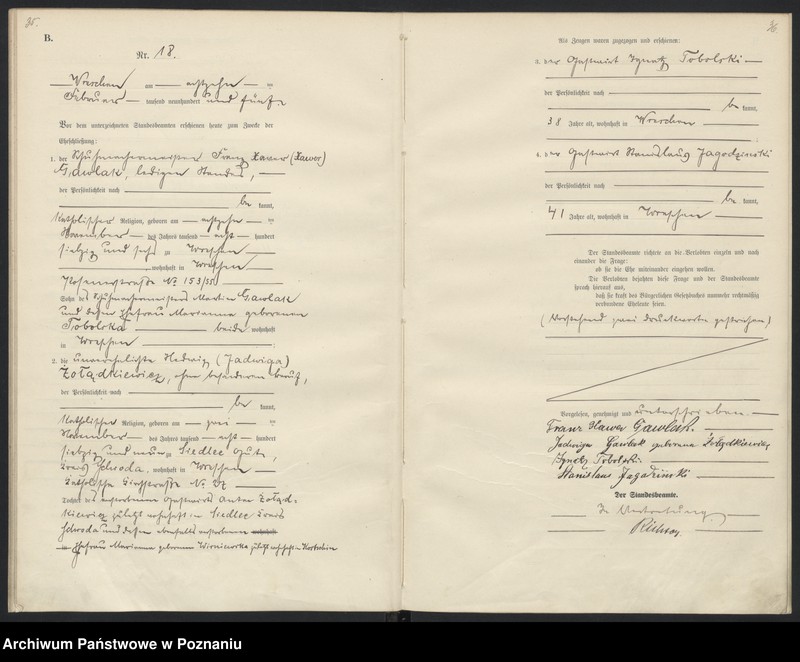 35.
B.
Nr. 18.
Wreschen am achtzehn ten
Februar tausend neunhundert und fünf
Vor dem unterzeichneten Standesbeamten erschienen heute zum Zwecke der
Eheschließung:
1. der Schuhmachermeister Franz Xaver (Xawer)
Gawlak, ledigen Standes,
der Persönlichkeit nach
be kannt,
katholischer Religion, geboren am achtzehn ten
November des Jahres tausend acht hundert
siebzig und sechs zu Wreschen
wohnhaft in Wreschen
Rosenerstraße No 153/55
Sohn des Schuhmachermeisters Martin Gawlak
und dessen Ehefrau Marianna geborenen
Tobolska beide wohnhaft
in Wreschen
2. die unverehelichte Hedwig (Jadwiga)
Żołądkiewicz, ohne besonderen Beruf,
der Persönlichkeit nach
be kannt,
katholischer Religion, geboren am zwei ten
November des Jahres tausend acht hundert
siebzig und neun zu Siedlec Gute,
Kreis Schroda, wohnhaft in Wreschen
Katholische No
Tochter des verstorbenen Gastwirts Anton Żołąd-
kiewicz zuletzt wohnhaft in Siedlec Kreis
Schroda und dessen ebenfalls verstorbenen
Ehefrau Marianna geborenen Wisniewska zuletzt wohnhaft in Kostschin
36.
Als Zeugen waren zugezogen und erschienen:
3. der Gastwirt Ignatz Tobolski
der Persönlichkeit nach
be kannt,
38 Jahre alt, wohnhaft in Wreschen
4. der Gastwirt Stanislaus Jagodzinski
der Persönlichkeit nach
be kannt,
41 Jahre alt, wohnhaft in Wreschen
Der Standesbeamte richtete an die Verlobten einzeln und nach
einander die Frage:
ob sie die Ehe miteinander eingehen wollen.
Die Verlobten bejahten diese Frage und der Standesbeamte
sprach hierauf aus,
daß sie kraft des Bürgerlichen Gesetzbuches nunmehr rechtmäßig
verbundene Eheleute seien.
(Vorstehend zwei Druckworte gestrichen)
Vorgelesen, genehmigt und unterschrieben.
Franz Xawer Gawlak.
Jadwiga Gawlak geborene Żołądkiewicz
Ignatz Tobolski.
Stanislaus Jagodzinski
Der Standesbeamte.
In Vertretung
Archiwum Państwowe w Poznaniu